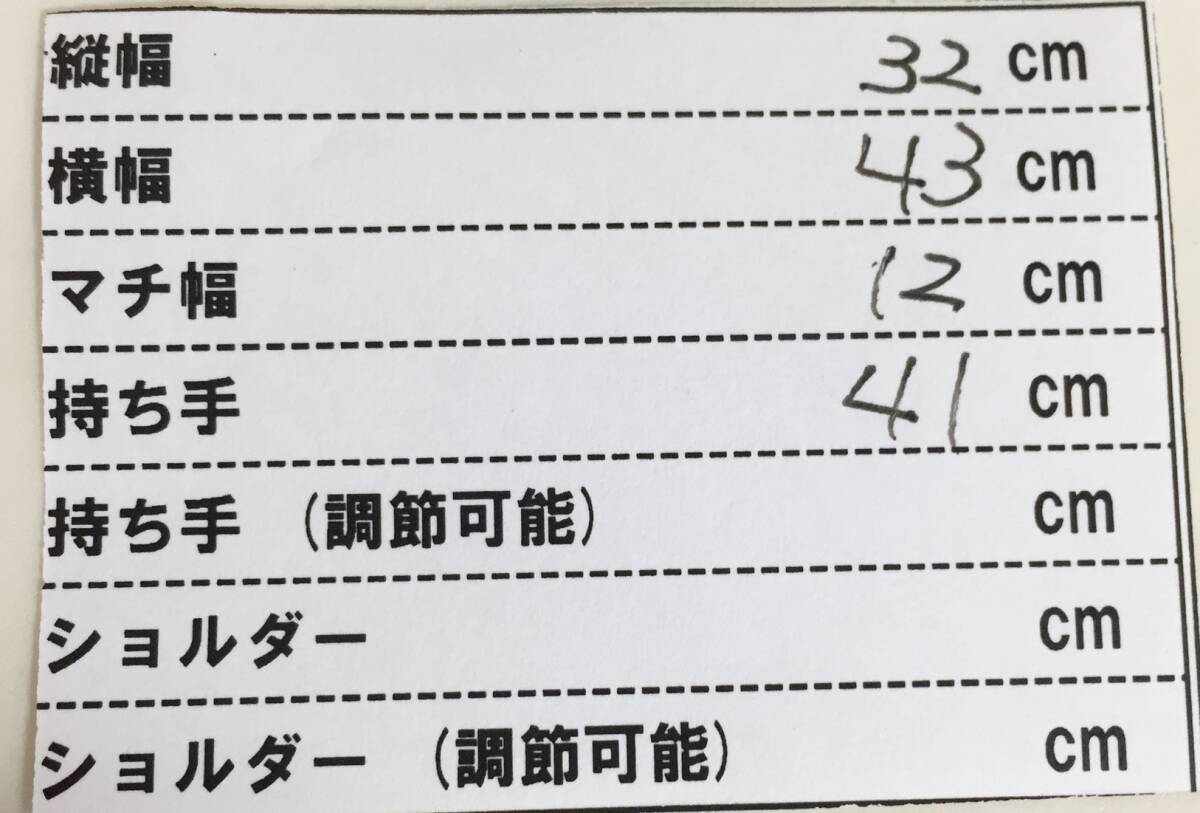 縦幅 32 cm
横幅 43 cm
マチ幅 12 cm
持ち手 41 cm
持ち手 (調節可能) cm
ショルダー cm
ショルダー (調節可能) cm